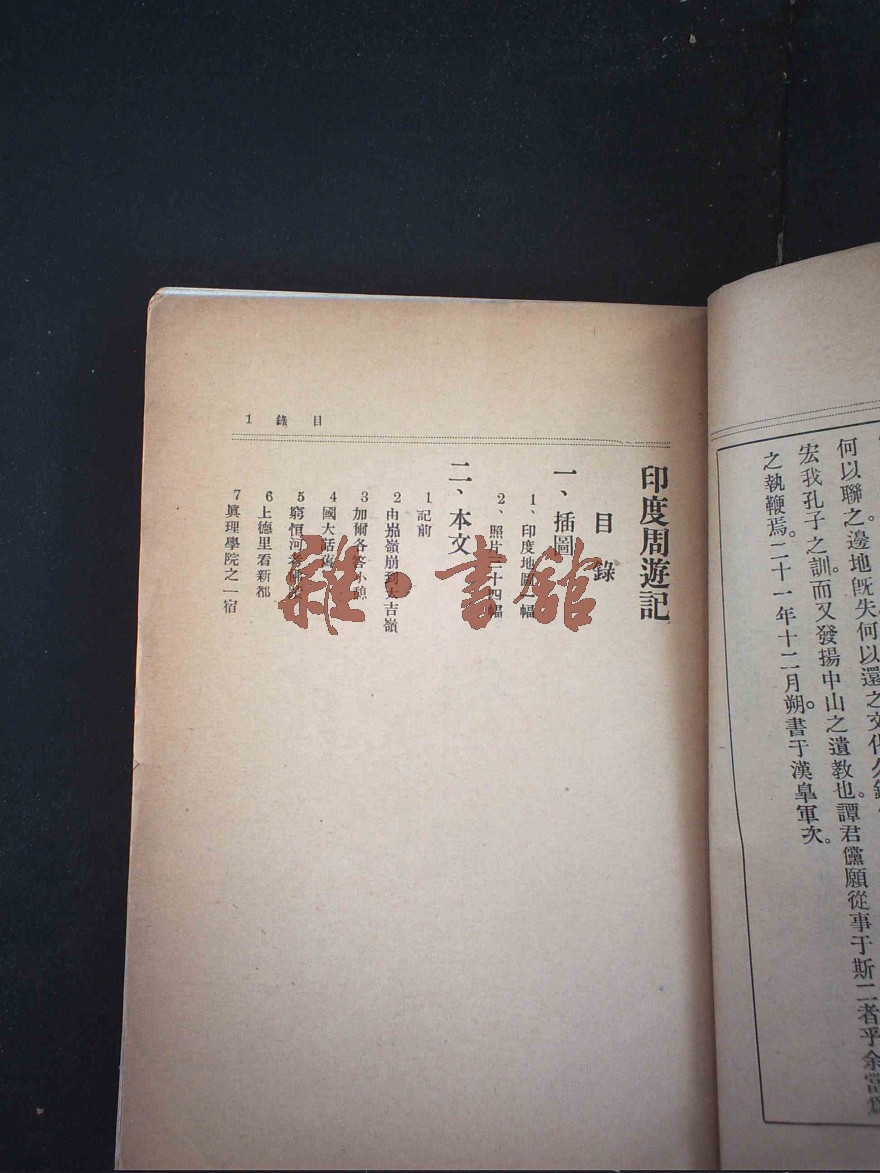 何以聯之。邊地既失何以還之文化
宏我孔子之訓。而又發揚中山之遺教也。譚君儻願從事于斯二者乎余當爲
之執鞭焉。二十一年十二月朔。書于漢皐軍次。
目錄 1
印度周遊記
目錄
一、插圖
1、印度地圖一幅
2、照片二十四幅
二、本文
1 記前
2 由茄嶺崩到大吉嶺
3 加爾各答小憩
4 國大話舊
5 窮恒河
6 上德里看新都
7 眞理學院之一宿
雜·書館